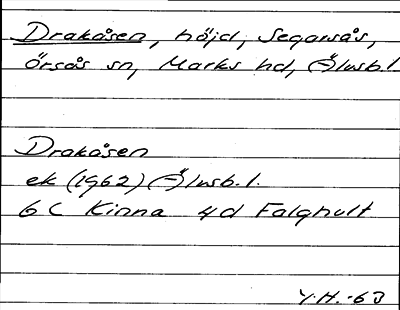 Drakåsen, höjd, Segarsås,
Örsås sn, Marks hd, Älvsb.l
Drakåsen
ek (1962) Älvsb.l.
6 C Kinna 4d Falghult
Y.H. -63